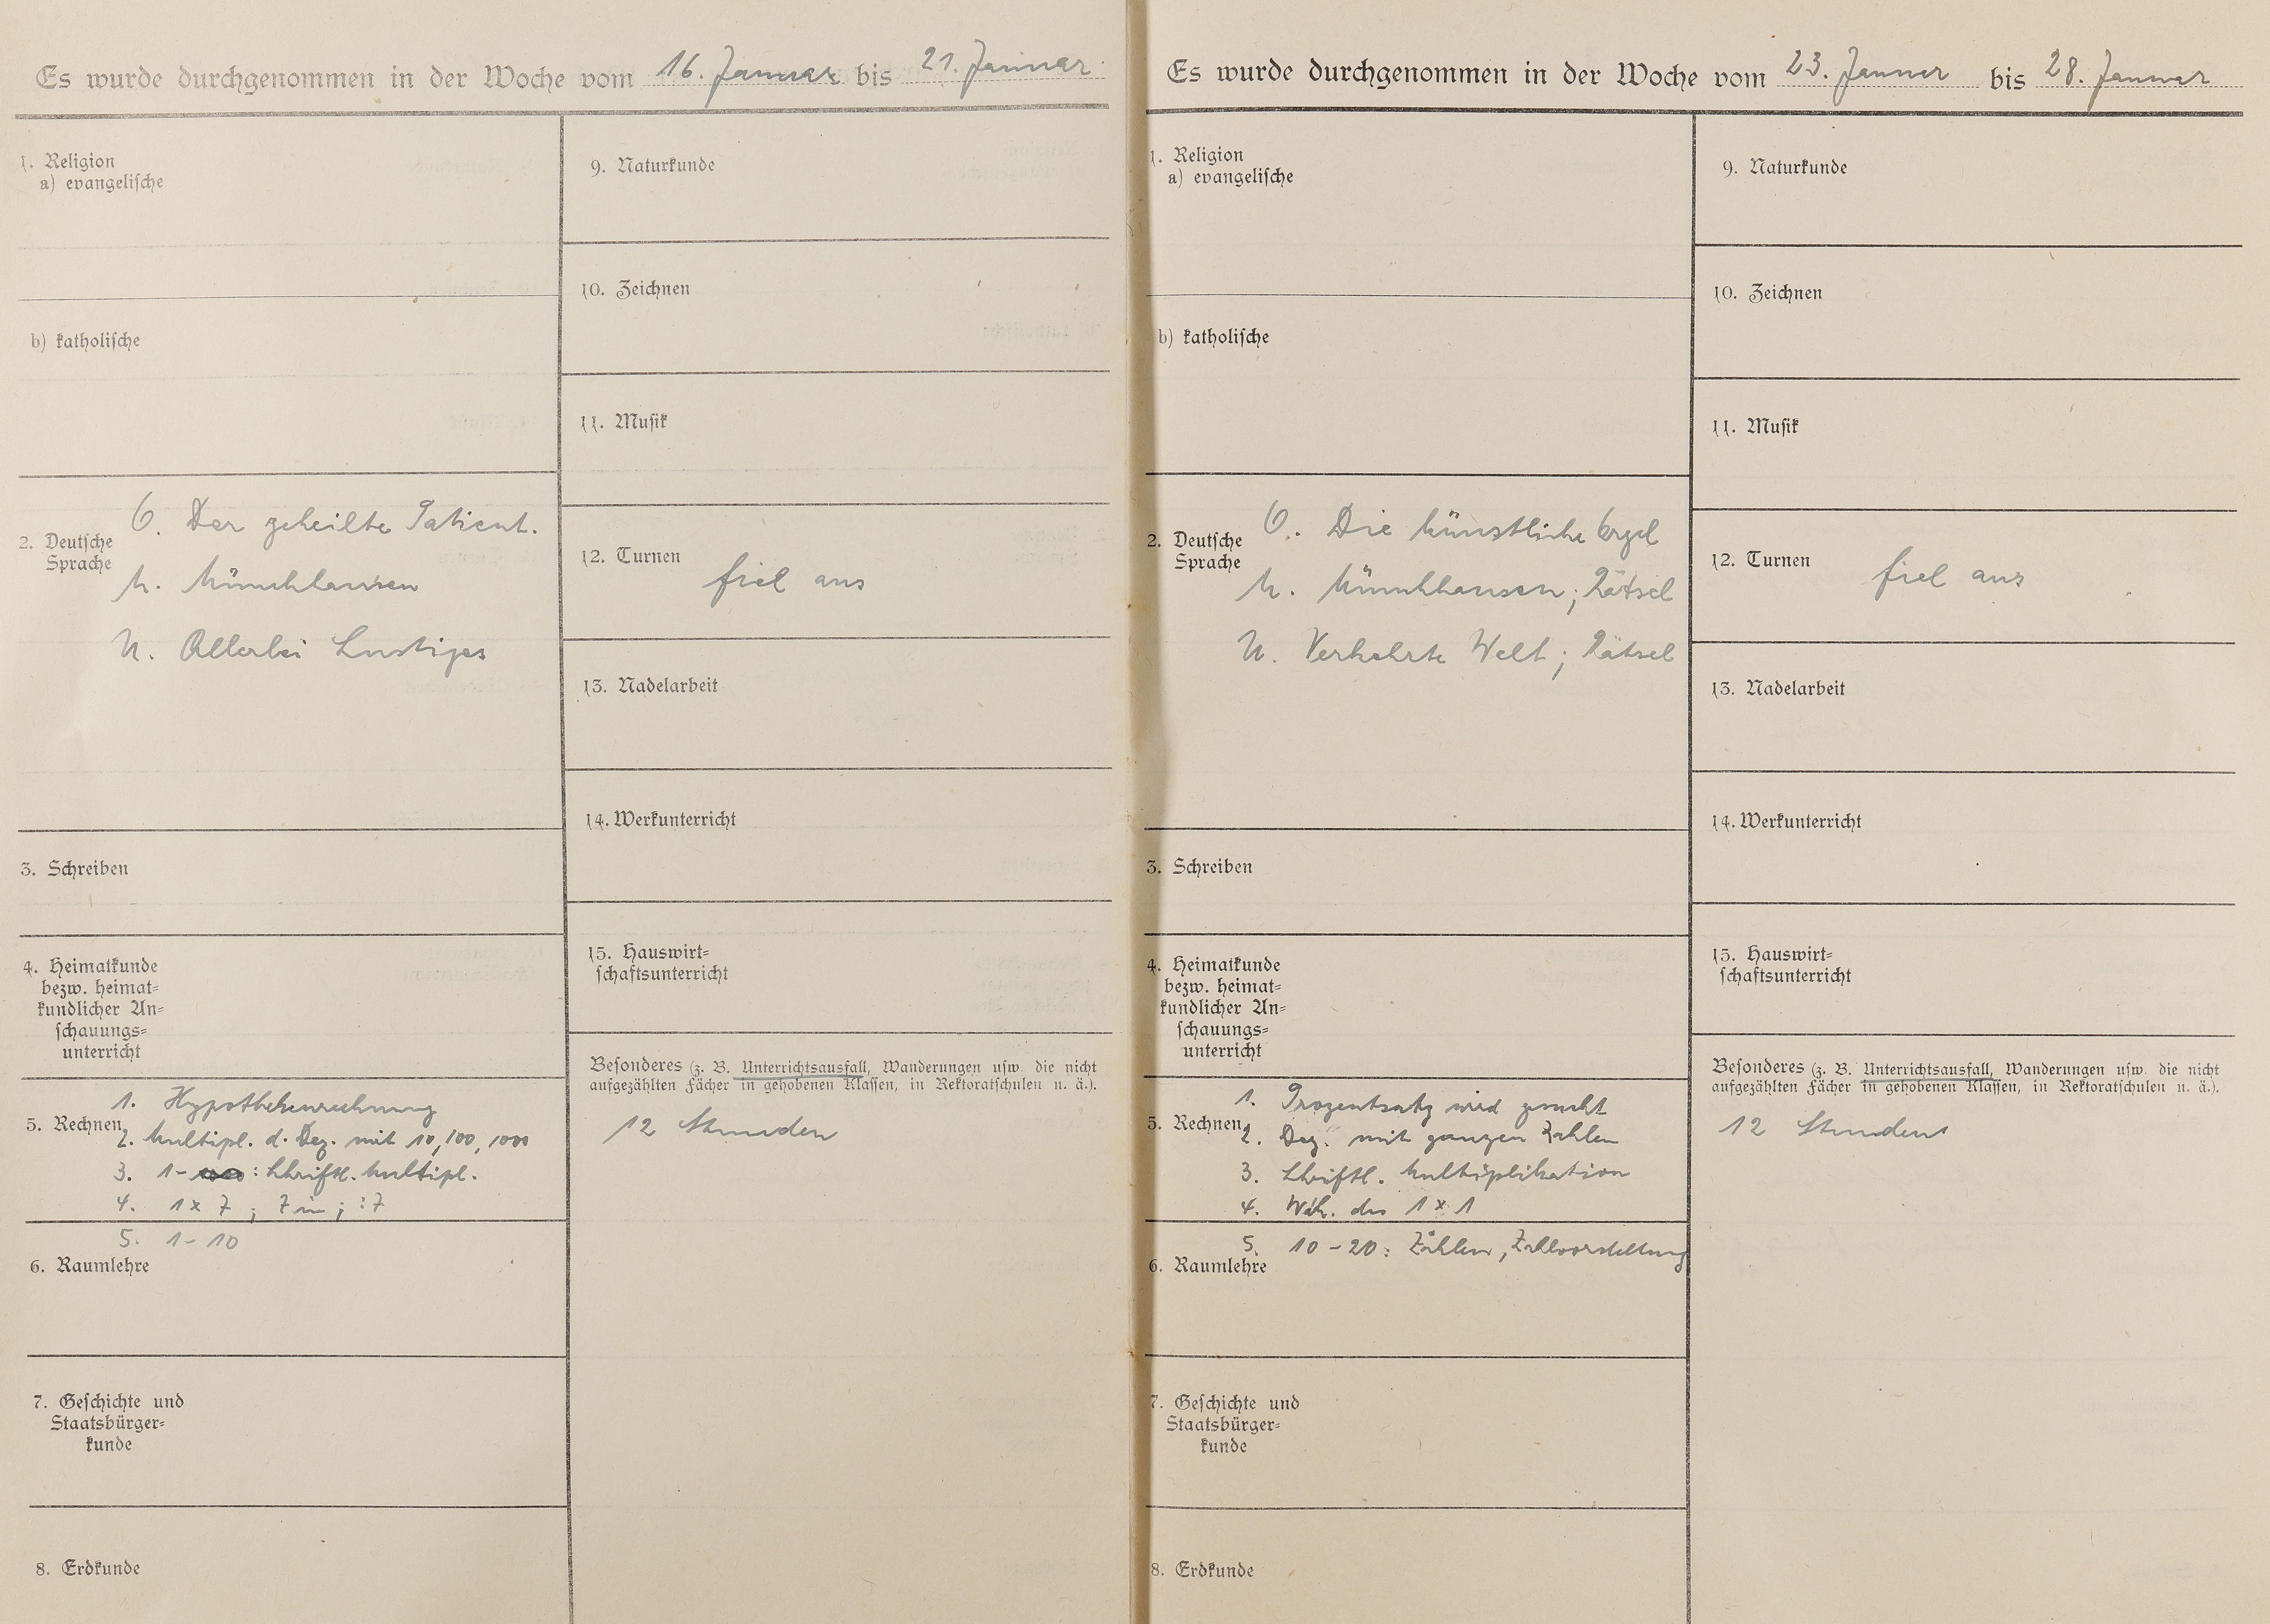 Es wurde durchgenommen in der Woche vom 16. Januar bis 21. Januar
1. Religion
a) evangelische
b) katholische
O. Der geheilte Patient.
2. Deutsche
Sprache
M. Münchhausen
U. Allerlei Lustiges
3. Schreiben
4. Heimatkunde
bezw. heimat=
kundlicher An=
schauungs=
unterricht
1. Hypothekenrechnung
5. Rechnen
2. Multipl. d. Dez. mit 10, 100, 1000
3. 1- : Schriftl. Multipl.
4. 1 x 7 ; 7 in ; : 7
5. 1 - 10
6. Raumlehre
7. Geschichte und
Staatsbürger=
kunde
8. Erdkunde
9. Naturkunde
10. Zeichnen
11. Musik
12. Turnen fiel aus
13. Nadelarbeit
14. Werkunterricht
15. Hauswirt=
schaftsunterricht
Besonderes (z. B. Unterrichtsausfall, Wanderungen usw. die nicht
aufgezählten Fächer in gehobenen Klassen, in Rektoratschulen u. ä.).
12 Stunden
Es wurde durchgenommen in der Woche vom 23. Januar bis 28. Januar
1. Religion
a) evangelische
b) katholische
O. Die künstliche Orgel
2. Deutsche
Sprache
M. Münchhausen; Rätsel
U. Verkehrte Welt; Rätsel
3. Schreiben
4. Heimatkunde
bezw. heimat=
kundlicher An=
schauungs=
unterricht
1. Prozentsatz wird gesucht
5. Rechnen
2. Dez. mit ganzen Zahlen
3. Schriftl. Multiplikation
4. Wdh. des 1 x 1
5. 10 - 20: Zählen, Zahlvorstellung
6. Raumlehre
7. Geschichte und
Staatsbürger=
kunde
8. Erdkunde
9. Naturkunde
10. Zeichnen
11. Musik
12. Turnen fiel aus
13. Nadelarbeit
14. Werkunterricht
15. Hauswirt=
schaftsunterricht
Besonderes (z. B. Unterrichtsausfall, Wanderungen usw. die nicht
aufgezählten Fächer in gehobenen Klassen, in Rektoratschulen u. ä.).
12 Stunden